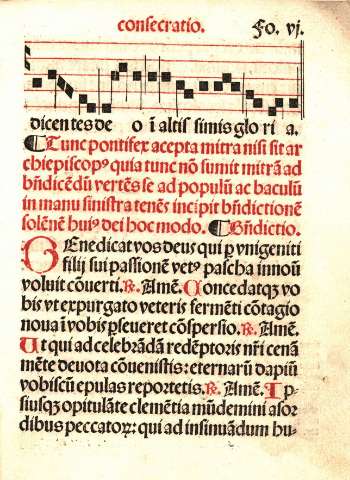 consecratio. Fo. vj.
dicentes deo ī altissimis glo ri a.
Tunc pontifex accepta mitra nisi sit ar
chiepiscopꝰ quia tunc nō sumit mitrā ad
bn̄dicēdū vertēs se ad populū ac baculū
in manu sinistra tenēs incipit bn̄dictionē
solēnē huiꝰ dei hoc modo. Bn̄dictio.
Benedicat vos deus qui ꝑ vnigeniti
filij sui passionē vetꝰ pascha in noū
voluit cōuerti. ℟. Amē. Concedatqꝫ vo
bis vt expurgato veteris fermēti cōtagio
noua ī vobis ꝑseueret cōspersio. ℟. Amē.
Ut qui ad celebrādā redēptoris nr̄i cenā
mēte deuota cōuenistis: eternarū dapiū
vobiscū epulas reportetis. ℟. Amē. Ip-
siusqꝫ opitulāte clemētia mūdemini a sor
dibus peccatoꝝ: qui ad insinuādum hu-